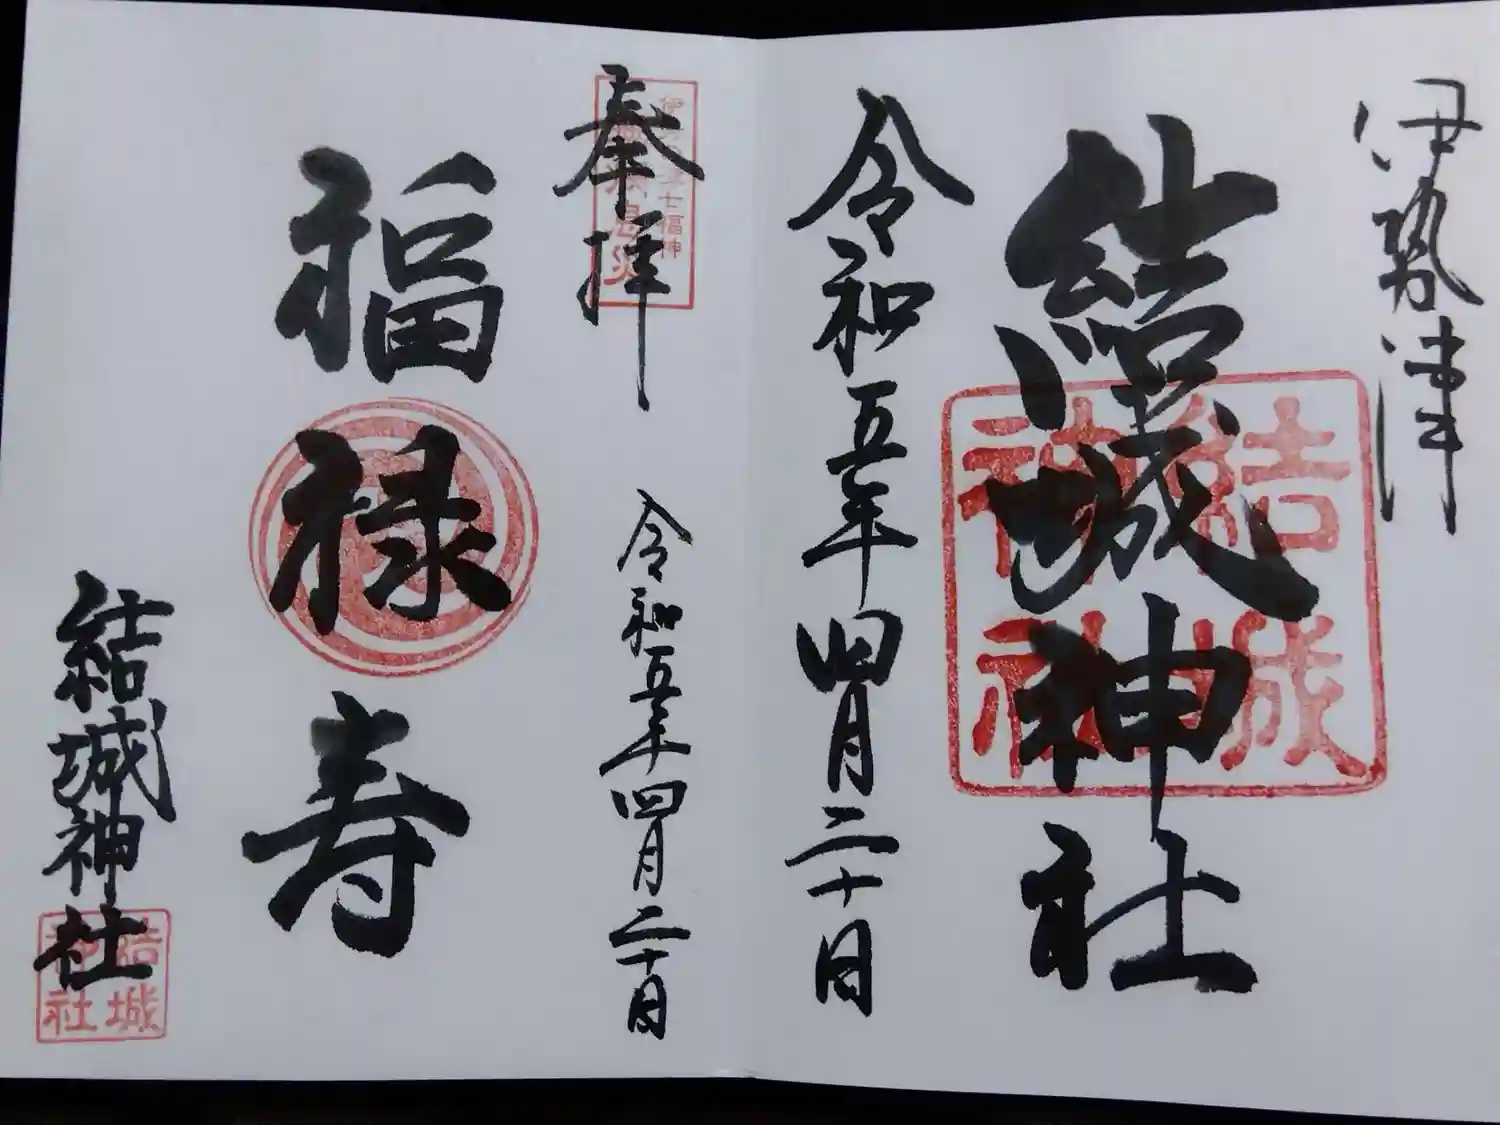 伊勢津
結城神社
結城
神社
令和五年四月二十日
奉拝
七福神
令和五年四月二十日
福禄寿
結城神社
結城
神社